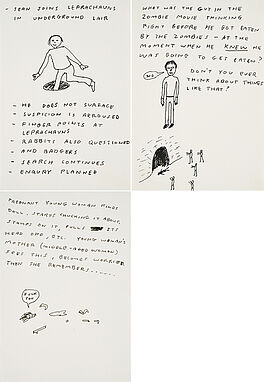 - SEAN JOINS LEPRACHAUNS
IN UNDERGROUND LAIR
- HE DOES NOT SURFACE
- SUSPICION IS AROUSED
- FINGER POINTS AT
LEPRACHAUNS
- RABBITS ALSO QUESTIONED
- AND BADGERS
- SEARCH CONTINUES
- ENQUIRY PLANNED
WHAT WAS THE GUY IN THE
ZOMBIE MOVIE THINKING
RIGHT BEFORE HE GOT EATEN
BY THE ZOMBIES - AT THE
MOMENT WHEN HE KNEW HE
WAS GOING TO GET EATEN?
NO
DON'T YOU EVER
THINK ABOUT THINGS
LIKE THAT?
PREGNANT YOUNG WOMAN FINDS
DOLL, STARTS CHUCKING IT ABOUT,
STAMPS ON IT, PULLS ITS
HEAD OFF, ETC. YOUNG WOMAN'S
MOTHER (MIDDLE-AGED WOMAN)
SEES THIS, BECOMES WORRIED
THEN SHE REMEMBERS......
YOU